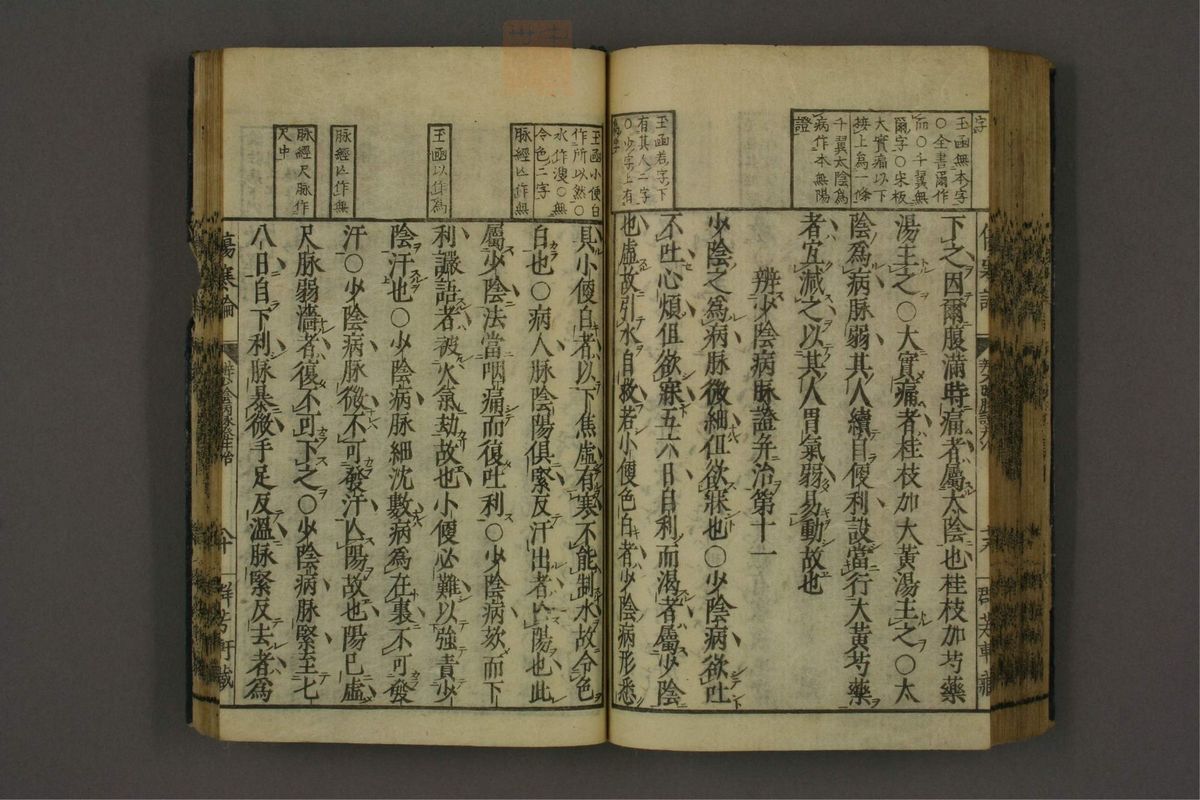 字
玉函無本字
○全書爾作
而○千翼無
爾字○宋板
大實痛以下
接上爲一條
千翼太陰爲
病作本無陽
證
下之因爾腹滿時痛者屬太陰也桂枝加芍藥
湯主之○大實痛者桂枝加大黃湯主之○太
陰爲病脉弱其人續自便利設當行大黃芍藥
者宜減之以其人胃氣弱易動故也
辨少陰病脉證并治第十一
玉函若字下
有其人二字
○少字上有
少陰之爲病脉微細但欲寐也○少陰病欲吐
不吐心煩但欲寐五六日自利而渴者屬少陰
也虛故引水自救若小便色白者少陰病形悉
玉函小便白
作所以然○
水作溲○無
令色二字
脉經亾作無
具小便白者以下焦虛有寒不能制水故令色
白也○病人脉陰陽俱緊反汗出者亾陽也此
屬少陰法當咽痛而復吐利○少陰病欬而下
玉函以作爲
利讝語者被火氣劫故也小便必難以強責少
陰汗也○少陰病脉細沈數病爲在裏不可發
脉經亾作無
汗○少陰病脉微不可發汗亾陽故也陽已虛
脉經尺脉作
尺中
尺脉弱濇者復不可下之○少陰病脉緊至七
八日自下利脉暴微手足反溫脉緊反去者爲
傷寒論